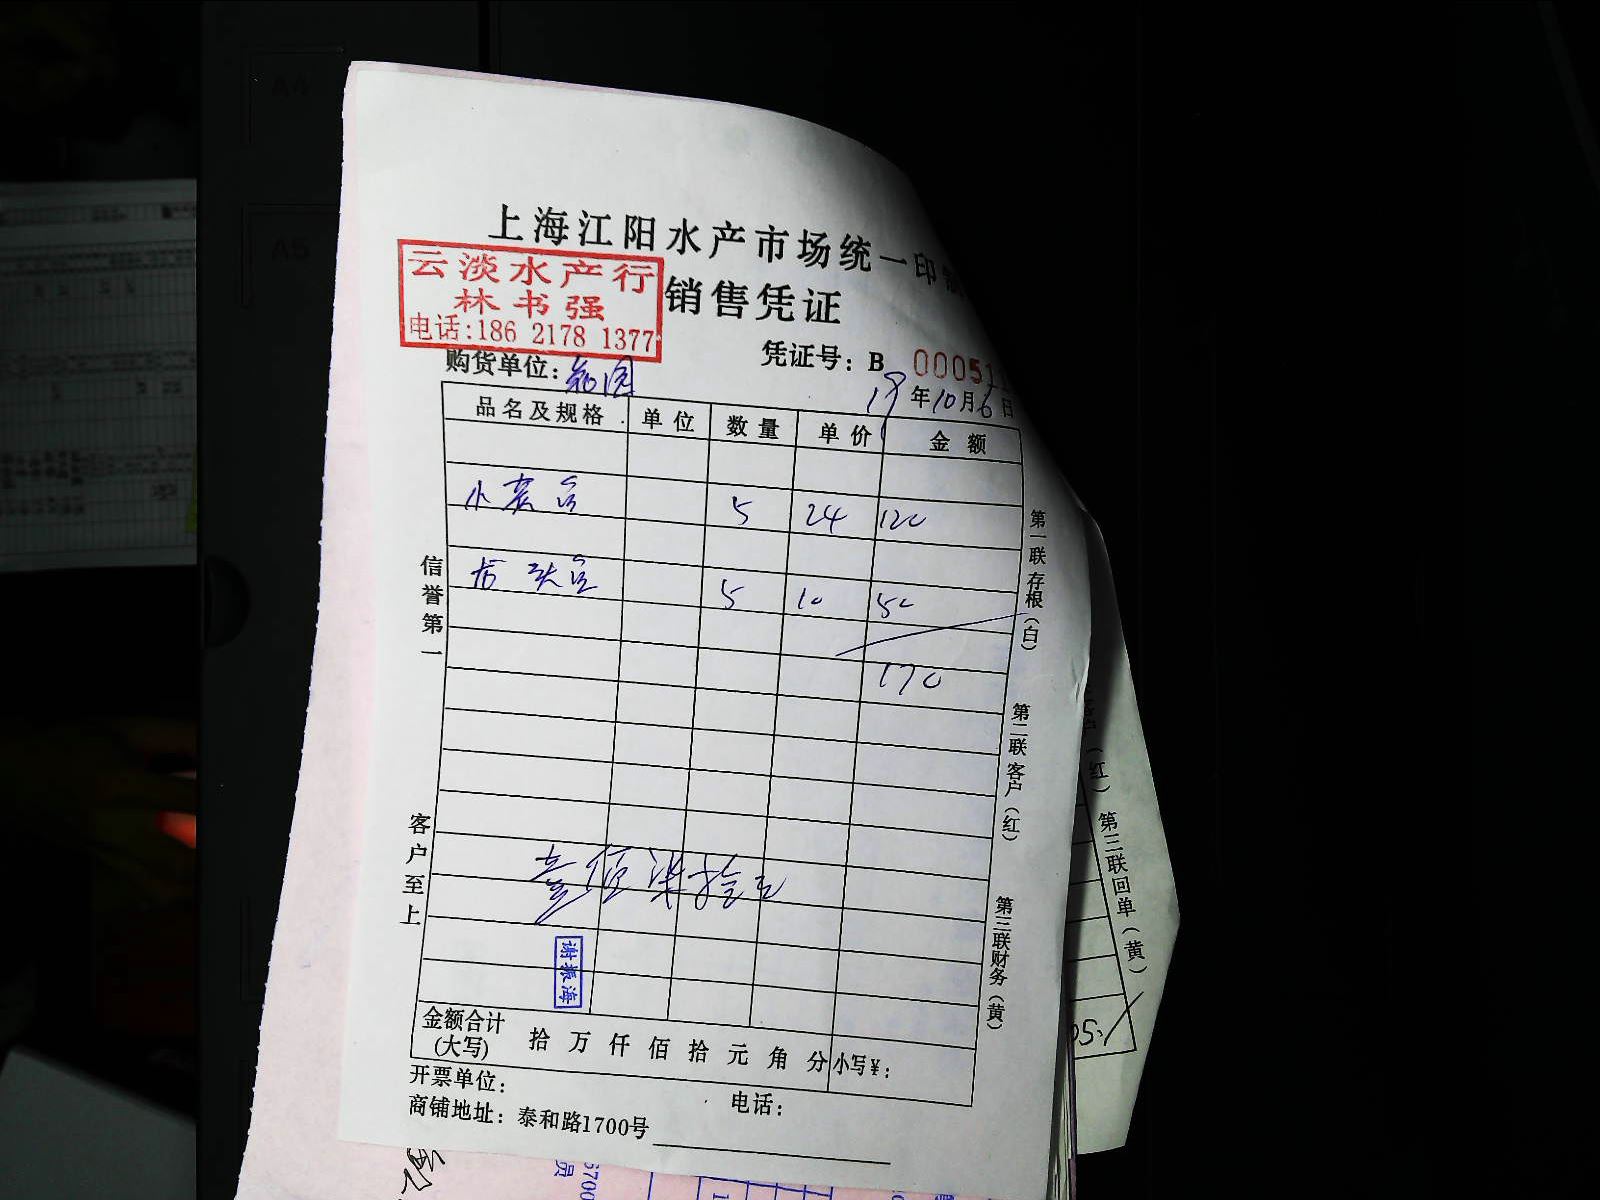 A4
A5
上海江阳水产市场统一印制
销售凭证
云淡水产行
林书强
电话:186 2178 1377
购货单位:
凭证号: B 00051
19年10月6日
品名及规格 单位 数量 单价 金额
小黄鱼 5 24 120
5 10 50
170
壹佰柒拾元
谢振海
金额合计 (大写) 拾 万 仟 佰 拾 元 角 分 小写¥:
开票单位: 电话:
商铺地址: 泰和路1700号
信誉第一
客户至上
第一联存根(白)
第二联客户(红)
第三联财务(黄)
(红)
第三联回单(黄)
05.